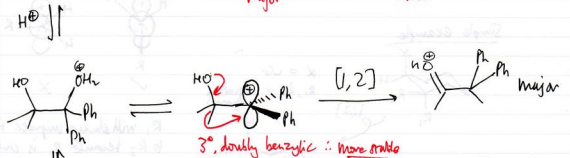 H⊕
HO ⊕OH₂ Ph Ph
HO ⊕ Ph Ph
[1,2]
⊕ HO Ph Ph major
3°, doubly benzylic ∴ more stable